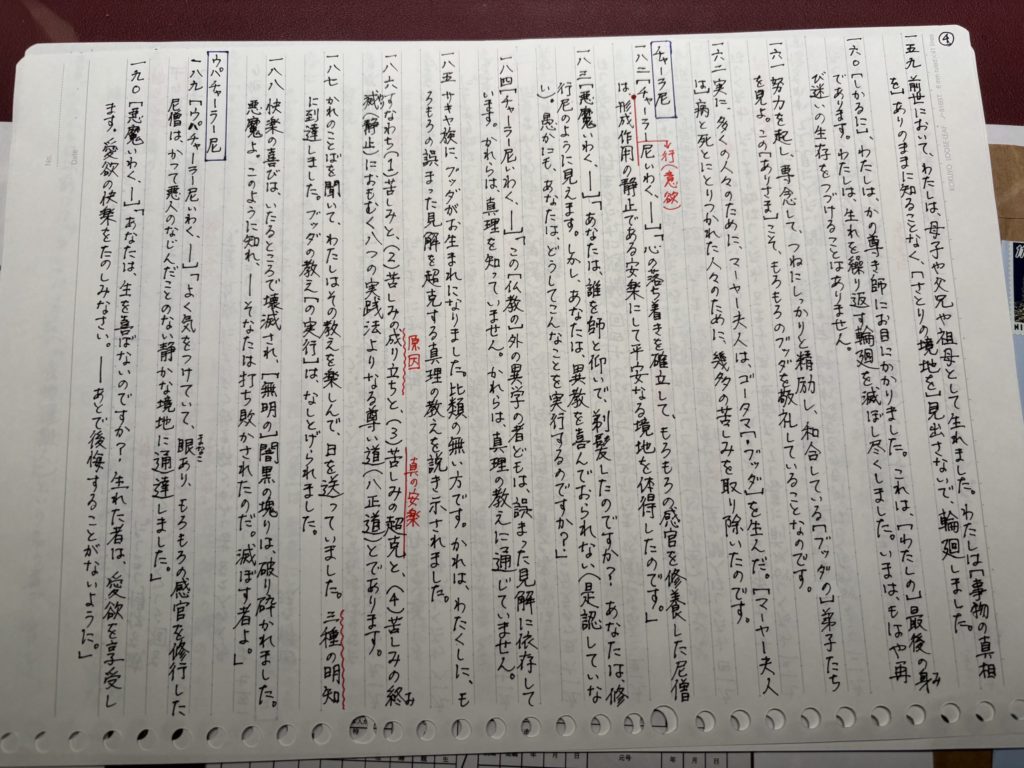 ④
一五九 前世において、わたしは、母子や父兄や祖母として生れました。わたしは「事物の真相
を」ありのままに知ることなく、[さとりの境地を]見出さないで、輪廻しました。
一六〇 [しかるに]、わたしは、かの尊き師にお目にかかりました。これは、[わたしの]最後の身
であります。わたしは、生れを繰り返す輪廻を滅ぼし尽くしました。いまはもはや再
び迷いの生存をつづけることはありません。
六一 努力を起し、専念して、つねにしっかりと精励し、和合している[ブッダの]弟子たち
を見よ。この[ありさま]こそ、もろもろのブッダを敬礼していることなのです。
六二 実に、多くの人々のために、マーヤー夫人は、ゴータマ[・ブッダ]を生んだ。[マーヤー夫人
は]病と死とにとりつかれた人々のために、幾多の苦しみを取り除いたのです。
チャーラー尼
→行(意欲)
一八二 [チャーラー尼いわく、―]「心の落ち着きを確立して、もろもろの感官を修養した尼僧
は、形成作用の静止である安楽にして平安なる境地を体得したのです。」
一八三 [悪魔いわく、―]「あなたは、誰を師と仰いで、剃髪したのですか? あなたは、修
行尼のように見えます。しかし、あなたは、異教を喜んでおられない(是認していな
い)。愚かにも、あなたは、どうしてこんなことを実行するのですか?」
一八四 [チャーラー尼いわく、―]「この[仏教の]外の異学の者どもは、誤まった見解に依存して
います。かれらは、真理を知っていません。かれらは、真理の教えに通じていません。
一八五 サキヤ族に、ブッダがお生まれになりました。比類の無い方です。かれは、わたくしに、も
ろもろの誤まった見解を超克する真理の教えを説き示されました。
原因
真の安楽
一八六 すなわち(1)苦しみと、(2)苦しみの成り立ちと、(3)苦しみの超克と、(4)苦しみの終
滅(静止)におもむく八つの実践法よりなる尊い道(八正道)とであります。
一八七 かれのことばを聞いて、わたしはその教えを楽しんで、日を送っていました。三種の明知
に到達しました。ブッダの教え[の実行]は、なしとげられました。
一八八 快楽の喜びは、いたるところで壊滅され、[無明の]闇黒の塊りは、破り砕かれました。
悪魔よ。このように知れ、―そなたは打ち敗かされたのだ。滅ぼす者よ。」
ウパチャーラー尼
一八九 [ウパチャーラー尼いわく、―]「よく気をつけていて、眼あり、もろもろの感官を修行した
まなこ
尼僧は、かつて悪人のなじんだことのない静かな境地に通達しました。」
一九〇 [悪魔いわく、―]「あなたは、生を喜ばないのですか? 生れた者は、愛欲を享受し
ます。愛欲の快楽をたのしみなさい。―あとで後悔することがないように。」